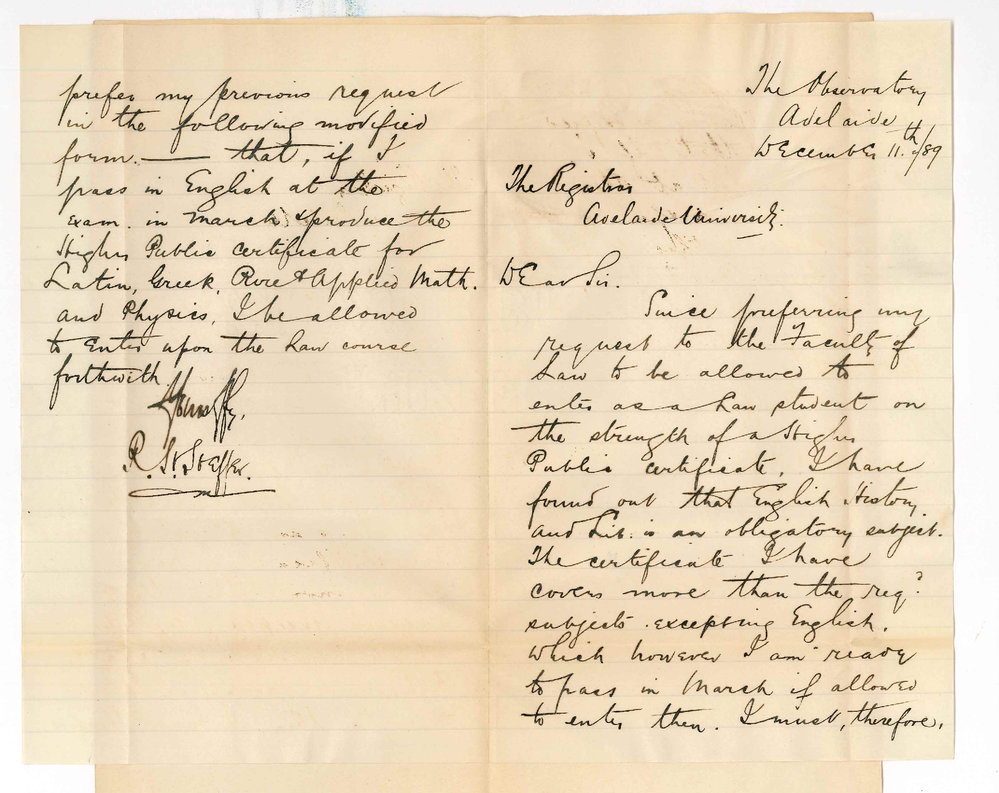 The Observatory
Adelaide
December 11.th/89
The Registrar
Adelaide University.
Dear Sir.
Since preferring my
request to the Faculty of
Law to be allowed to
enter as a Law student on
the strength of a Higher
Public certificate, I have
found out that English History
and Lit. is an obligatory subject.
The certificate I have
covers more than the req.d
subjects excepting English.
Which however I am ready
to pass in March if allowed
to enter then. I must, therefore,
prefer my previous request
in the following modified
form. — that, if I
pass in English at the
exam. in March & produce the
Higher Public certificate for
Latin, Greek, Pure & Applied Math.
and Physics, I be allowed
to enter upon the Law course
forthwith
R.